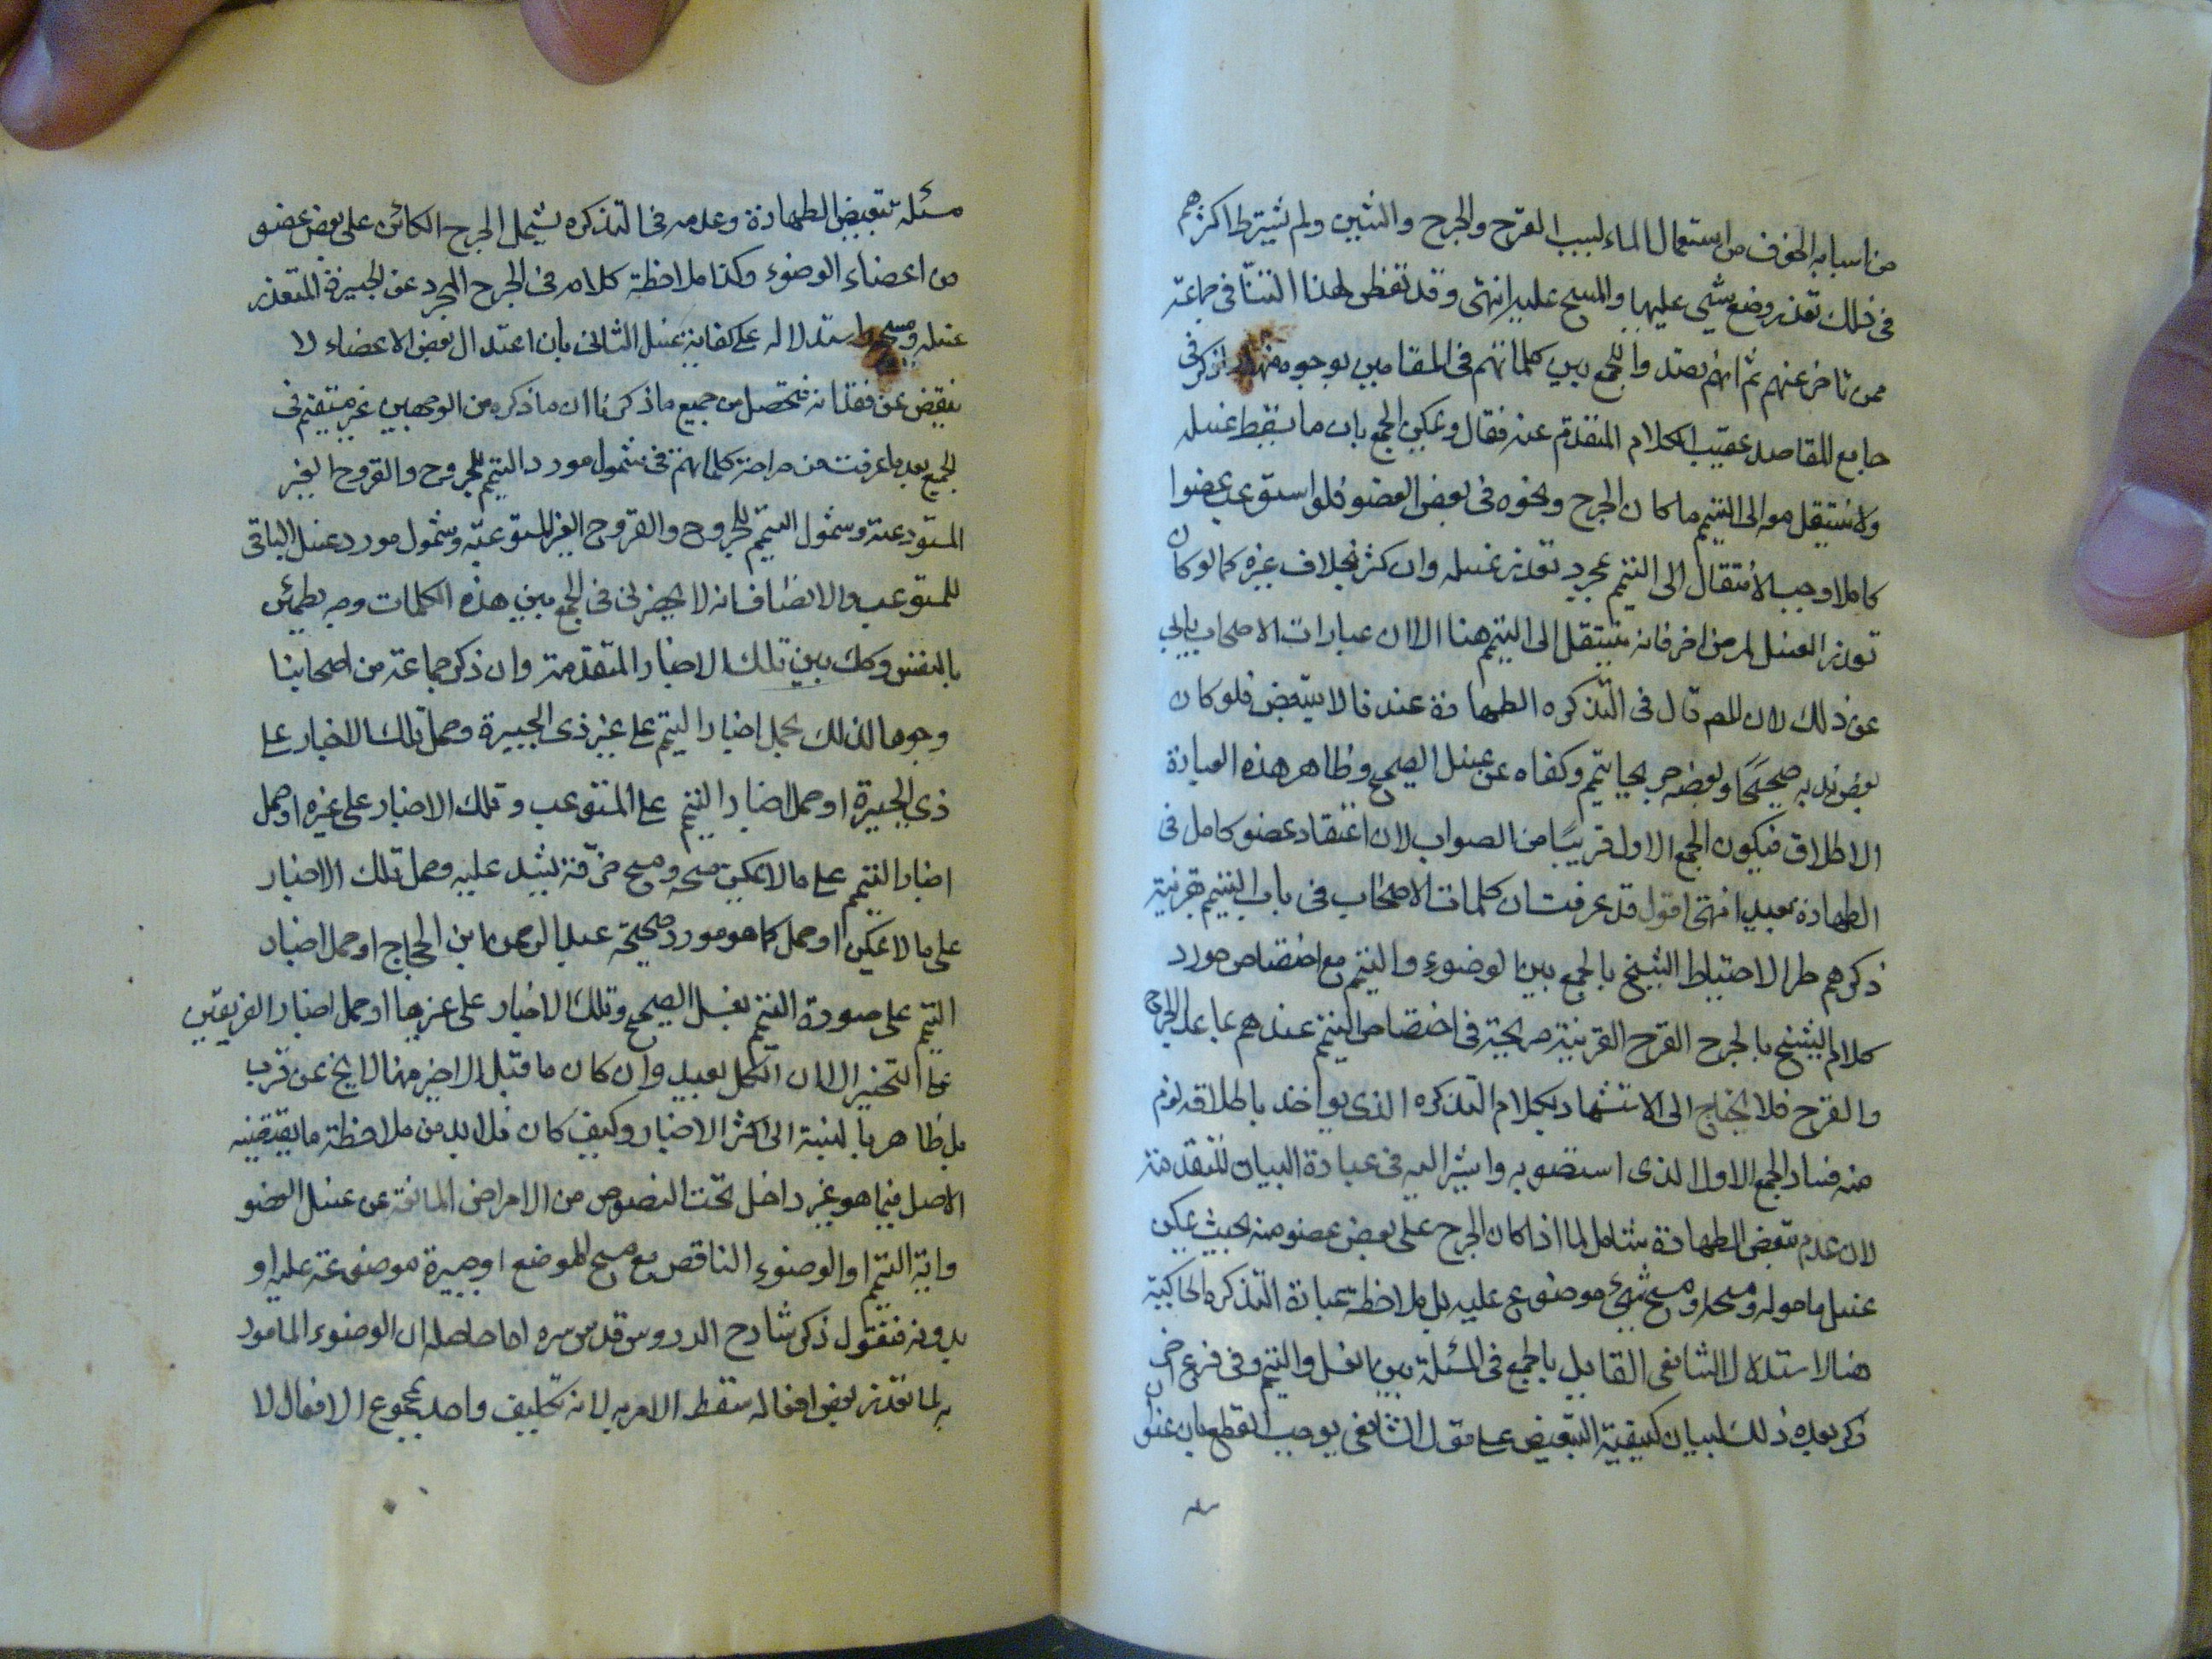 من اسبابه الخوف من استعمال الماء لسبب القرح والجرح والشين ولم يشترط اكثرهم
فى ذلك تعذر وضع شىء عليها والمسح عليه انتهى وقد تفطن لهذا التنافى جماعة
ممن تاخر عنهم ثم انهم بصدد الجمع بين كلماتهم فى المقامين بوجوه منها ما ذكر فى
جامع المقاصد عقيب الكلام المتقدم عنه فقال ويمكن الجمع بان ما يسقط غسله
ولا ينتقل معه الى التيمم ما كان الجرح ونحوه فى بعض العضو فلو استوعب عضوا
كاملا وجب الانتقال الى التيمم بمجرد تعذر غسله وان كثر بخلاف غيره كما لو كان
تعذر الغسل لمرض اخر فانه ينتقل الى التيمم هنا الا ان عبارات الاصحاب تابى
عن ذلك لان المص قال فى التذكره الطهارة عندنا لا يتبعض فلو كان
بعض بدنه صحيحًا وبعضه جريحا يتمم وكفاه عن غسل الصحيح وظاهر هذه العبارة
الاطلاق فيكون الجمع الاول قريبًا من الصواب لان اغتفار عضو كامل فى
الطهارة بعيد انتهى اقول قد عرفت ان كلمات الاصحاب فى باب التيمم بقرينة
ذكرهم طرا لاحتياط الشيخ بالجمع بين الوضوء والتيمم مع اختصاص مورد
كلام الشيخ بالجرح القرح القرينة صريحة فى اختصاص التيمم عندهم بما عدا الجرح
والقرح فلا يحتاج الى الاستشهاد بكلام التذكره الذى يواخذ باطلاقه نعم
منه فساد الجمع الاول الذى استصوبه واشير اليه فى عبارة البيان المتقدمة
لان عدم تبعض الطهارة شامل لما اذا كان الجرح على بعض عضو منه بحيث يمكن
غسل ما حوله ومسحه ومسح شىء موضوع عليه بل ملاحظة عبارة التذكره الحاكية
هنا لاستدلال الشافعى القايل بالجمع فى المسئلة بين الغسل والتيمم وفى فرع اخر
ذكر بعد ذلك لبيان كيفية التبعيض على قول الشافعى يوجب القطع بان عنوان
مسئله تبعيض الطهارة وعدمه فى التذكره يشمل الجرح الكائن على بعض عضو
من اعضاء الوضوء وكذا ملاحظة كلامه فى الجرح المجرد عن الجبيرة المتعذر
غسله ومسحه استدلاله على كفاية غسل الثانى بان اعتدال بعض الاعضاء لا
ينقض عن فقدانه فتحصل من جميع ما ذكرنا ان ما ذكره من الوجهين غير مستقيم فى
الجمع بعد ما عرفت من صراحة كلماتهم فى شمول مورد التيمم للجروح والقروح الغير
المستوعبة وشمول التيمم للجروح والقروح الغير المستوعبة وشمول مورد غسل الباقى
للمستوعب والانصاف انه لا يحضرنى فى الجمع بين هذه الكلمات وجه يطمئن
بالنفس وكك بين تلك الاخبار المتقدمة وان ذكر جماعة من اصحابنا
وجوها لذلك بحمل اخبار التيمم على غير ذى الجبيرة وحمل تلك الاخبار على
ذى الجبيرة او حمل اخبار التيمم على المستوعب وتلك الاخبار على غيره او حمل
اخبار التيمم على ما لا يمكن مسحه ومسح خرقة يشد عليه وحمل تلك الاخبار
على ما لا يمكن او حمل كما هو مورد صحيحة عبد الرحمن بن الحجاج او حمل اخبار
التيمم على صورة التيمم بغسل الصحيح وتلك الاخبار على غيرها او حمل اخبار الفريقين
على التخيير الا ان الكل بعيد وان كان ما قبل الاخير منها لا يخ عن قرب
بل ظاهر بالنسبة الى اكثر الاخبار وكيف كان فلا بد من ملاحظة ما يقتضيه
الاصل فيما هو غير داخل تحت النصوص من الامراض المانعة عن غسل العضو
وانه التيمم او الوضوء الناقص مع مسح الموضع او جبيرة موضوعة عليه او
بدونه فنقول ذكر شارح الدروس قدس سره ما حاصله ان الوضوء المامور
به لما تعذر بعض افعاله سقط الامر به لانه تكليف واحد بمجموع الافعال لا